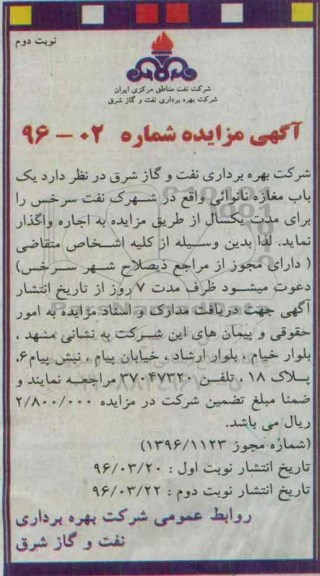 نوبت دوم
شرکت نفت مناطق مرکزی ایران
شرکت بهره برداری نفت و گاز شرق
آگهی مزایده شماره ۰۲ - ۹۶
شرکت بهره برداری نفت و گاز شرق در نظر دارد یک
باب مغازه نانوائی واقع در شهرک نفت سرخس را
برای مدت یکسال از طریق مزایده به اجاره واگذار
نماید. لذا بدین وسیله از کلیه اشخاص متقاضی
( دارای مجوز از مراجع ذیصلاح شهر سرخس)
دعوت میشود ظرف مدت ۷ روز از تاریخ انتشار
آگهی جهت دریافت مدارک و اسناد مزایده به امور
حقوقی و پیمان های این شرکت به نشانی مشهد ،
بلوار خیام ، بلوار ارشاد ، خیابان پیام ، نبش پیام۶،
پلاک ۱۸ ، تلفن ۳۷۰۴۷۳۲۰ مراجعه نمایند و
ضمنا مبلغ تضمین شرکت در مزایده ۲/۸۰۰/۰۰۰
ریال می باشد.
(شماره مجوز ۱۳۹۶/۱۱۲۳)
تاریخ انتشار نوبت اول : ۹۶/۰۳/۲۰
تاریخ انتشار نوبت دوم : ۹۶/۰۳/۲۲
روابط عمومی شرکت بهره برداری
نفت و گاز شرق